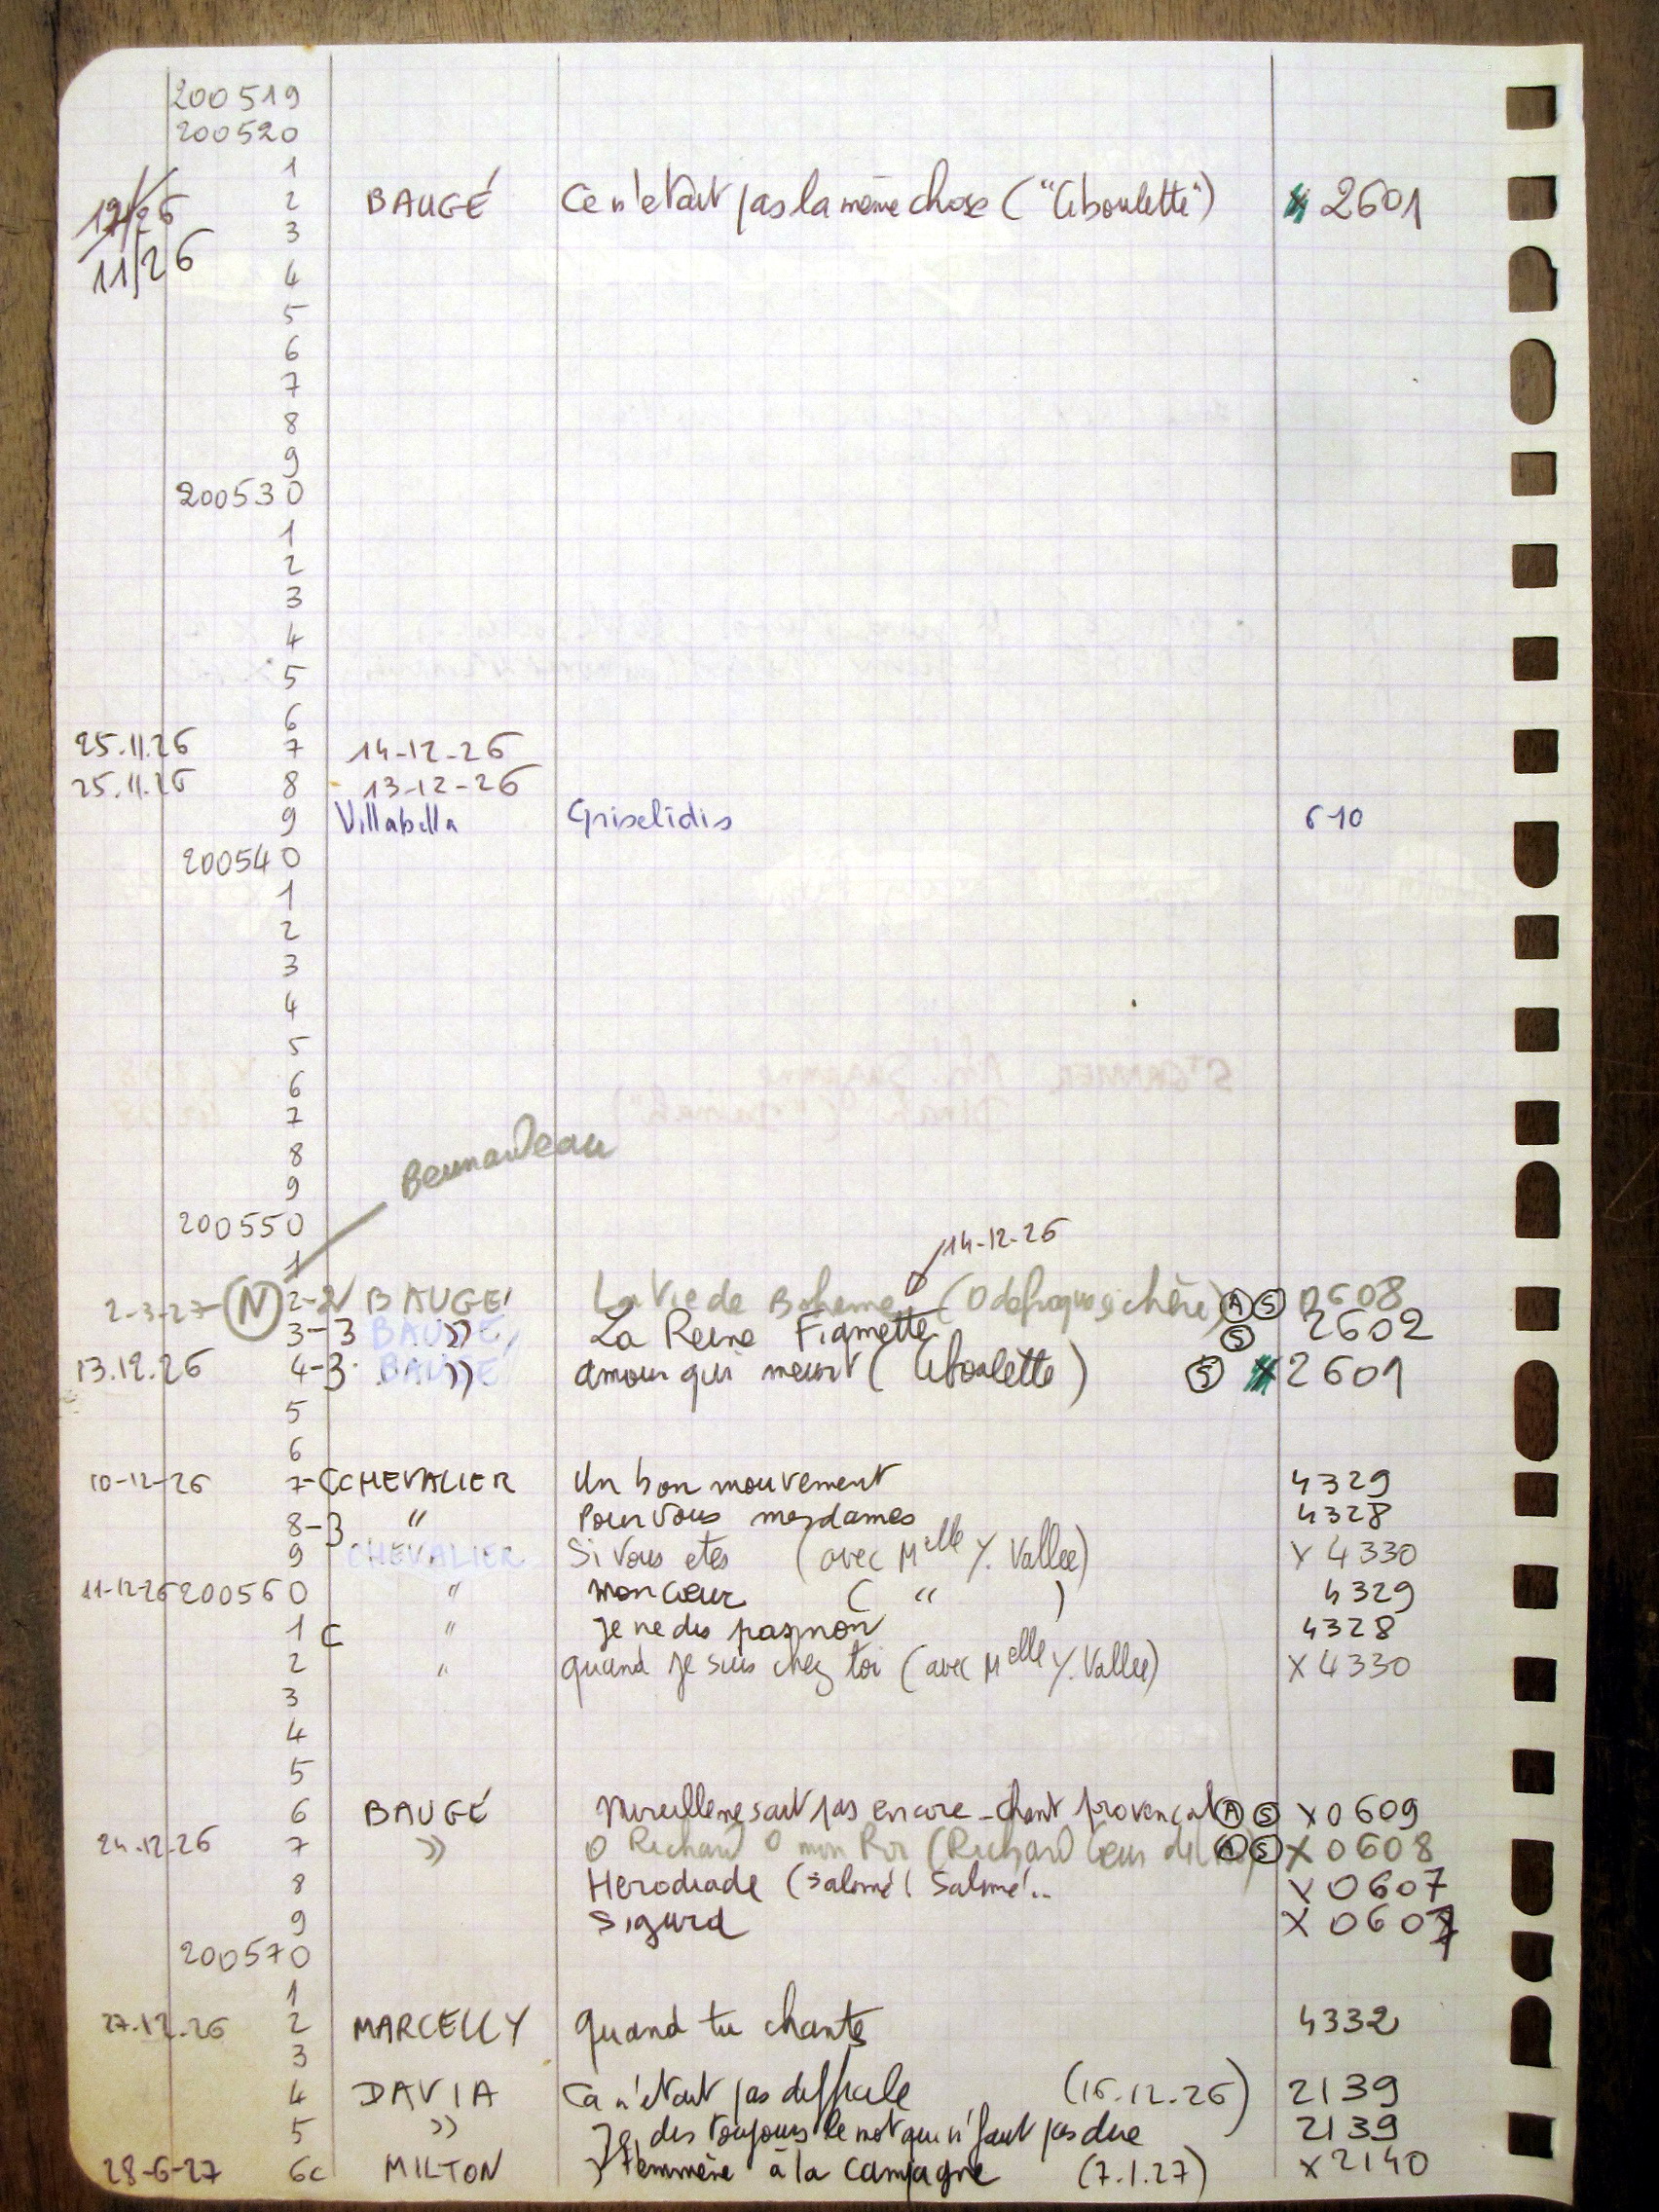 200519
200520
1
12/26 2 BAUGÉ Ce n'etait pas la même chose ("Ciboulette") 2601
11/26 3
4
5
6
7
8
9
200530
1
2
3
4
5
6
25.11.26 7 14-12-26
25.11.26 8 13-12-26
9 Villabella Griselidis 610
200540
1
2
3
4
5
6
7
8
9
Bernardeau
200550
14-12-26
1
2-3-27 N 2-2 BAUGÉ La Vie de Boheme (O defroques chère) A S 0608
3-3 BAUGE " La Reine Fiamette S 2602
13.12.26 4-3 BAUGE " amour qui meurt (Ciboulette) S 2601
5
6
10-12-26 7-C CHEVALIER Un bon mouvement 4329
8-3 " Pour vous mesdames 4328
9 CHEVALIER Si vous etes (avec Melle Y. Vallee) X 4330
11-12-26 200560 " mon cœur ( " ) 4329
1 C " Je ne dis pas non 4328
2 " quand je suis chez toi (avec Melle Y. Vallee) X 4330
3
4
5
6 BAUGÉ Mireille ne sait pas encore - chant provencal A S X 0609
24.12.26 7 " O Richard O mon Roi (Richard Cœur de A S X 0608
8 Herodiade (Salomé! Salomé!.. X 0607
9 Sigurd X 0607
200570
1
27.12.26 2 MARCELLY quand tu chantes 4332
3
4 DAVIA Ca n'etait pas difficile (16.12.26) 2139
5 " Je dis toujours le mot qu'il n'faut pas dire 2139
28-6-27 6c MILTON J'temmène à la campagne (7.1.27) X 2140